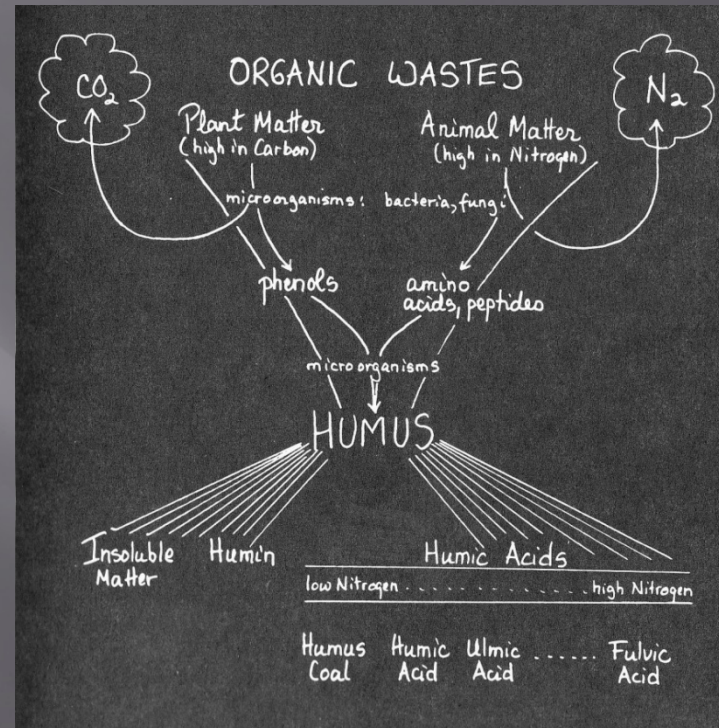 CO₂
ORGANIC WASTES
N₂
Plant Matter
(high in Carbon)
Animal Matter
(high in Nitrogen)
microorganisms: bacteria, fungi
phenols
amino
acids, peptides
microorganisms
HUMUS
Insoluble
Matter
Humin
Humic Acids
low Nitrogen . . . . . . . . . . . . . . . . high Nitrogen
Humus
Coal
Humic
Acid
Ulmic
Acid
......
Fulvic
Acid